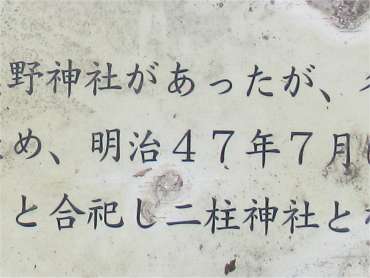 野神社があったが、
め、明治47年7月
と合祀し二柱神社と